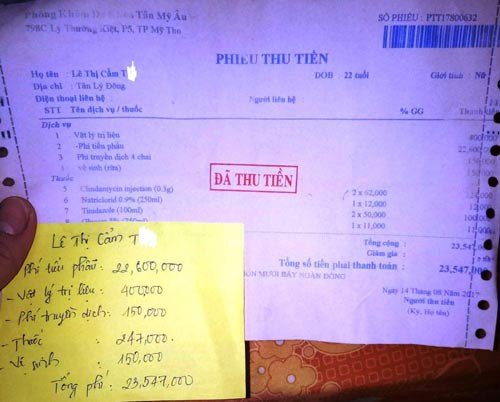 Phòng Khám Đa Khoa Tân Mỹ Âu
798C Lý Thường Kiệt, P5, TP Mỹ Tho
SỐ PHIẾU : PTT17800632
PHIẾU THU TIỀN
Họ tên : Lê Thị Cẩm T
DOB : 22 tuổi
Giới tính : Nữ
Địa chỉ : Tân Lý Đông
Điện thoại liên hệ :
Người liên hệ :
STT Tên dịch vụ / thuốc % GG Thành
Dịch vụ
1 Vật lý trị liệu 400,000
2 -Phí tiểu phẫu 22,600,000
3 Phí truyền dịch 4 chai 150,000
vệ sinh (rửa) 150,000
Thuốc
5 Clindamycin injection (0.3g) 2 x 62,000
6 Natriclorid 0.9% (250ml) 1 x 12,000
7 Tinidazole (100ml) 2 x 50,000
8 (250ml) 1 x 11,000
ĐÃ THU TIỀN
Tổng cộng : 23,547
Giảm giá :
Tổng số tiền phải thanh toán : 23,547,000
MƯƠI BẢY NGÀN ĐỒNG
Ngày 14 Tháng 08 Năm 2017
Người thu tiền
(Ký, Họ tên)
Lê Thị Cẩm T
Phí tiểu phẫu : 22,600,000
- Vật lý trị liệu : 400,000
- Phí truyền dịch : 150,000
- Thuốc : 247,000
- Vệ sinh : 150,000
Tổng phí : 23,547,000